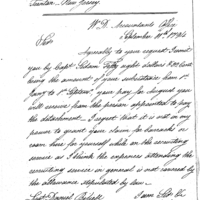 Trenton - New Jersey.
W.D. Accountants Office
September 10th 1794
Sir
Agreeably to your request I sent
you by Capt. Adam Fifty eight dollars &
being the amount of your subsistence from 1st
to 1st your pay for August you
will receive from the person appointed to pay
the detachment. I regret that it is not in my
power to grant your claim for barracks or
room hire for yourself while on the recruiting
service as I think the expenses attending the
recruiting service in general is not covered by
the allowance stipulated by law.
Lieut Daniel
I am Sir &c